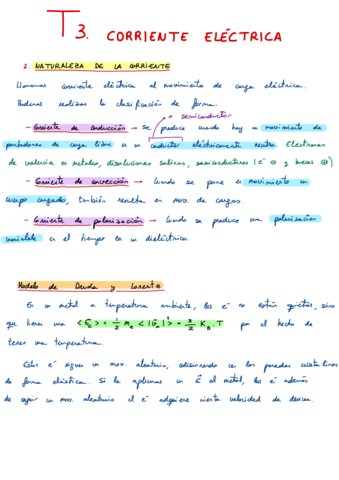 T3. CORRIENTE ELÉCTRICA
1. NATURALEZA DE LA CORRIENTE
Llamamos corriente eléctrica al movimiento de carga eléctrica.
Podemos realizar la clasificación de forma.
o semiconductor
- Corriente de conducción → se produce cuando hay un movimiento de
portadores de carga libre en un conductor eléctricamente neutro. Electrones
de valencia en metales, disoluciones salinas, semiconductores (e⁻ ⊖ y huecos ⊕)
- Corriente de convección → Cuando se pone en movimiento un
cuerpo cargado, también resulta en mov. de cargas.
- Corriente de polarización → Cuando se produce una polarización
variable en el tiempo en un dieléctrico.
Modelo de Drude y Lorentz
En un metal a temperatura ambiente, los e⁻ no están quietos, sino
que tienen una < Ec > = 1/2 Me < |v̄e| >² = 3/2 KB · T por el hecho de
tener una temperatura.
Estos e⁻ siguen un mov. aleatorio, colisionando con las paredes cristalinas
de forma elástica. Si le aplicamos un E̅ al metal, los e⁻ además
de seguir un mov. aleatorio el e⁻ adquiere cierta velocidad de deriva.